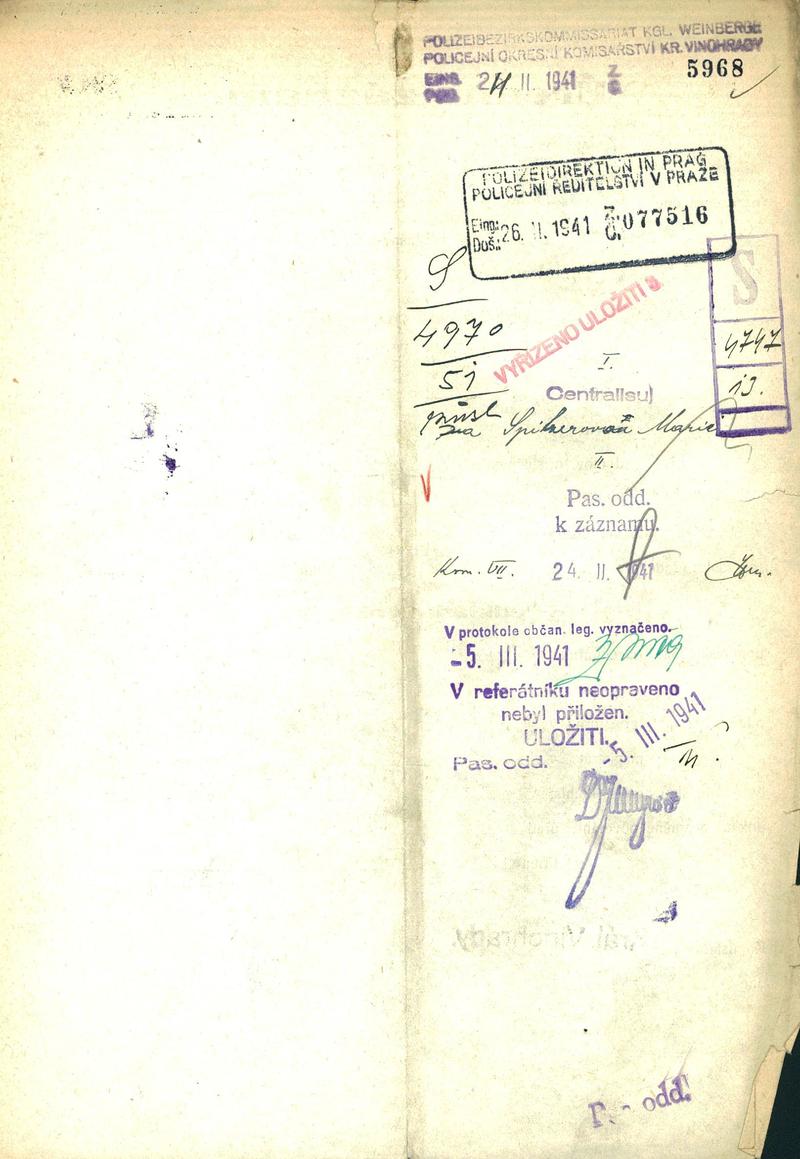 POLIZEIBEZIRKSKOMMISSARIAT KGL. WEINBERGE
POLICEJNÍ OKRESNÍ KOMISAŘSTVÍ KR. VINOHRADY
EING. 24 II. 1941 Z 5968
POLIZEIDIREKTION IN PRAG
POLICEJNÍ ŘEDITELSTVÍ V PRAZE
Eing.:
Doš.: 26. II. 1941 Z. Č. 077516
S
S
4970
51
4747
13.
VYŘÍZENO ULOŽITI
I.
Centralisuj
Spitzerová Marie
II.
Pas. odd.
k záznamu.
Kom. VII. 24. II. 1941
V protokole občan. leg. vyznačeno.
-5. III. 1941
V referátníku neopraveno
nebyl přiložen.
ULOŽITI.
-5. III. 1941
Pas. odd.
Král. Vinohrady.
Pas. odd.